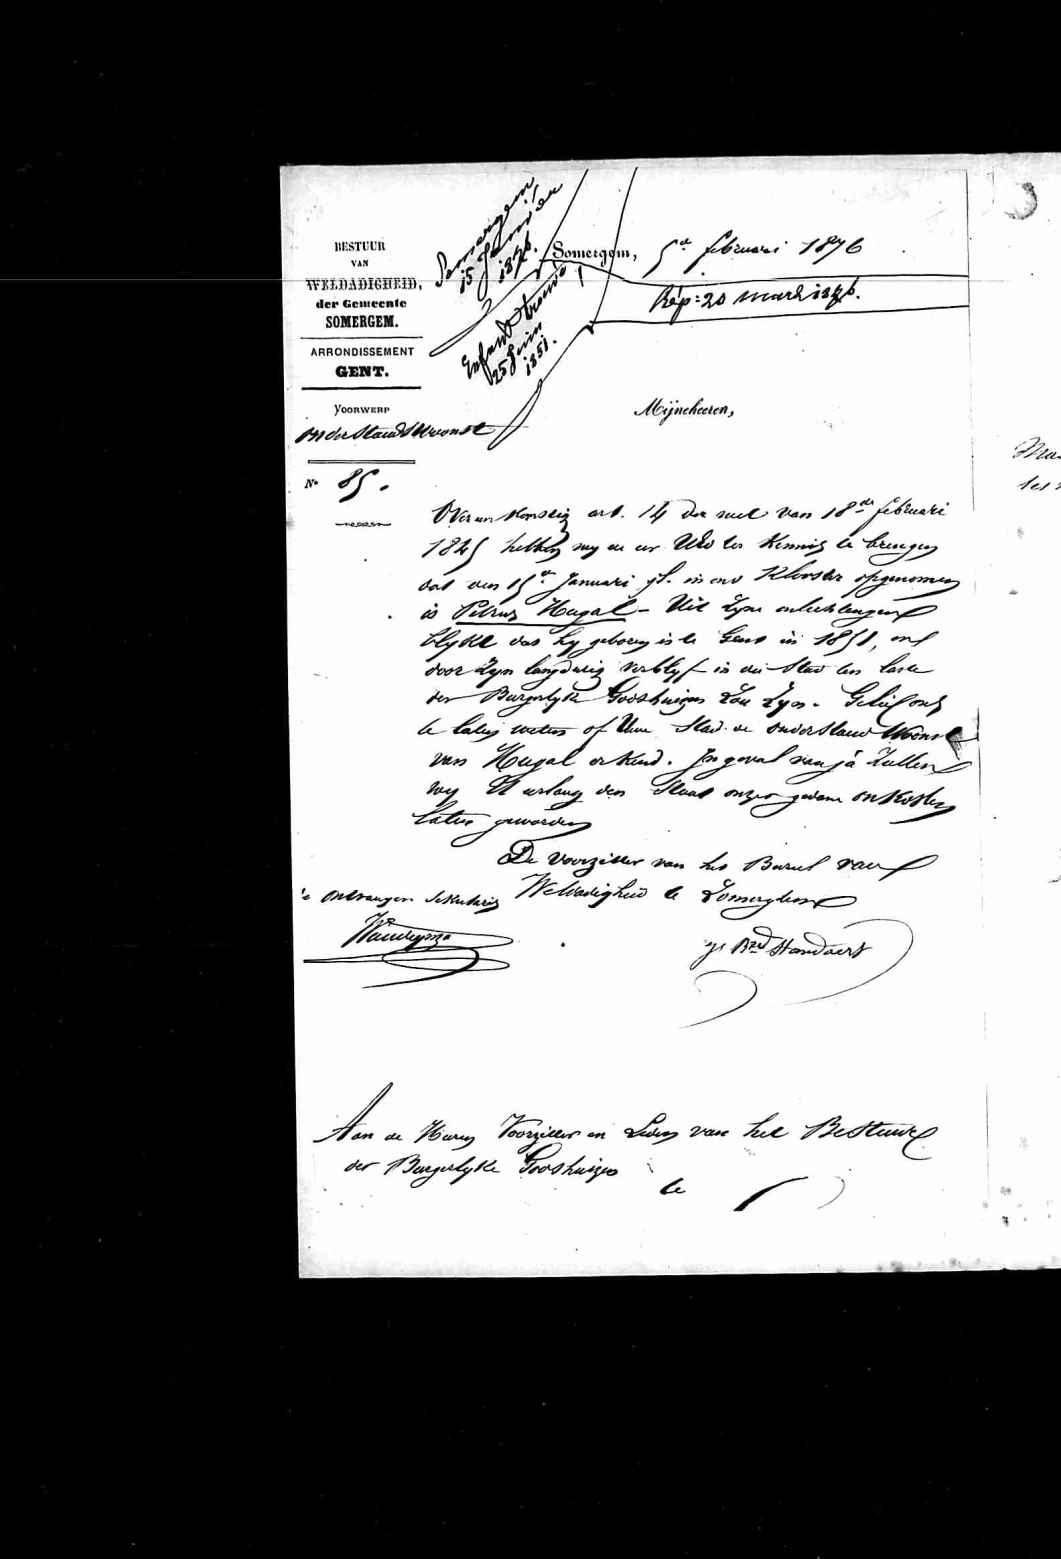 BESTUUR
VAN
WELDADIGHEID,
der Gemeente
SOMERGEM.
ARRONDISSEMENT
GENT.
VOORWERP
onderstandswoonst
N° 85.
Somergem
15 Janvier
1876.
Enfant trouvé
25 Juin
1851.
Somergem, 5de februari 1876
Rép: 20 mars 1876.
Mijneheeren,
Overeenkomstig art. 14 der wet van 18de februari
1845 hebben wy de eer UEd ter kennis te brengen
dat den 15de Januari jl. in ons Klooster opgenomen
is Petrus Hugal - Uit zyne inlichtingen
blykt dat hy geboren is te Gent in 1851, en
door zyn langdurig verblyf in die Stad ten laste
der Burgerlyke Godshuizen zou zyn. Gelief ons
te laten weten of Uwe Stad de onderstand woonst
van Hugal erkend. In geval van ja zullen
wy U den Staat onzer gedane onkosten
laten geworden
De Voorzitter van het Bureel van
Weldadigheid te Somergem
ontvanger Sekretaris
Bd Standaert
Aan de Heeren Voorzitter en Leden van het Bestuur
der Burgerlyke Godshuizen
te